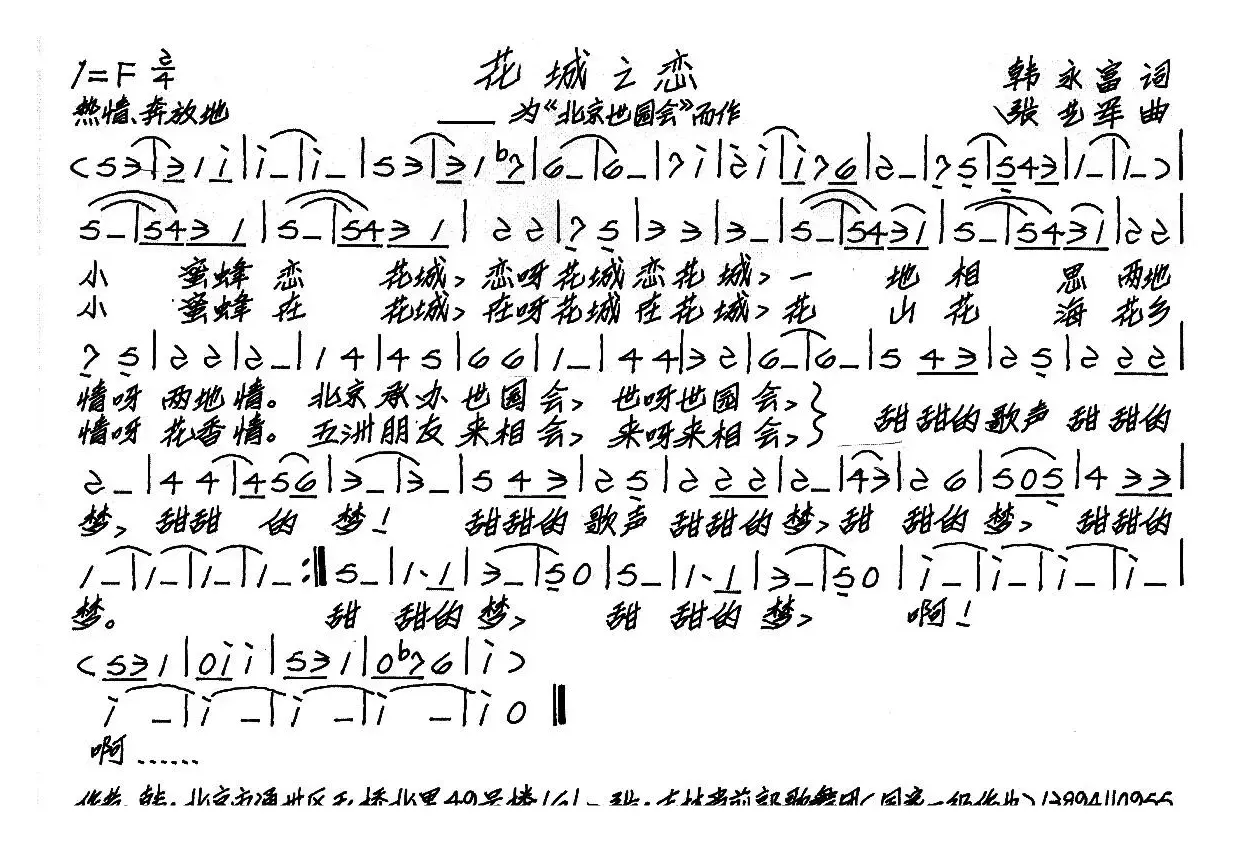 1=F 2/4 花城之恋 韩永富词
热情、奔放地 ——为“北京世园会”而作 张艺军曲
(5 3 | 3 1 i | i – | i – | 5 3 | 3 1 b7 | 6 – | 6 – | 7 i | 2 i | i 7 6 | 2 – | 7 5 | 5 4 3 | 1 – | 1 – )|
5 – | 5 4 3 1 | 5 – | 5 4 3 1 | 2 2 | 7 5 | 3 3 | 3 – | 5 – | 5 4 3 1 | 5 – | 5 4 3 1 | 2 2 |
小 蜜蜂恋 花城, 恋呀花城恋花城, 一 地相 思 两地
小 蜜蜂在 花城, 在呀花城在花城, 花 山花 海 花乡
7 5 | 2 2 | 2 – | 1 4 | 4 5 | 6 6 | 1 – | 4 4 | 3 2 | 6 – | 6 – | 5 4 3 | 2 5 | 2 2 2 |
情呀 两地情。 北京承办世园会, 世呀世园会, } 甜甜的歌声 甜甜的
情呀 花香情。 五洲朋友来相会, 来呀来相会, }
2 – | 4 4 | 4 5 6 | 3 – | 3 – | 5 4 3 | 2 5 | 2 2 2 | 2 – | 4 3 | 2 6 | 5 0 5 | 4 3 3 |
梦, 甜甜 的 梦! 甜甜的歌声 甜甜的梦, 甜 甜的梦, 甜甜的
1 – | 1 – | 1 – | 1 – :‖ 5 – | 1· 1 | 3 – | 5 0 | 5 – | 1· 1 | 3 – | 5 0 | i – | i – | i – | i – |
梦。 甜 甜的 梦, 甜 甜的 梦, 啊!
(5 3 1 | 0 i i | 5 3 1 | 0 b7 6 | i )
i – | i – | i – | i – | i 0 ‖
啊……